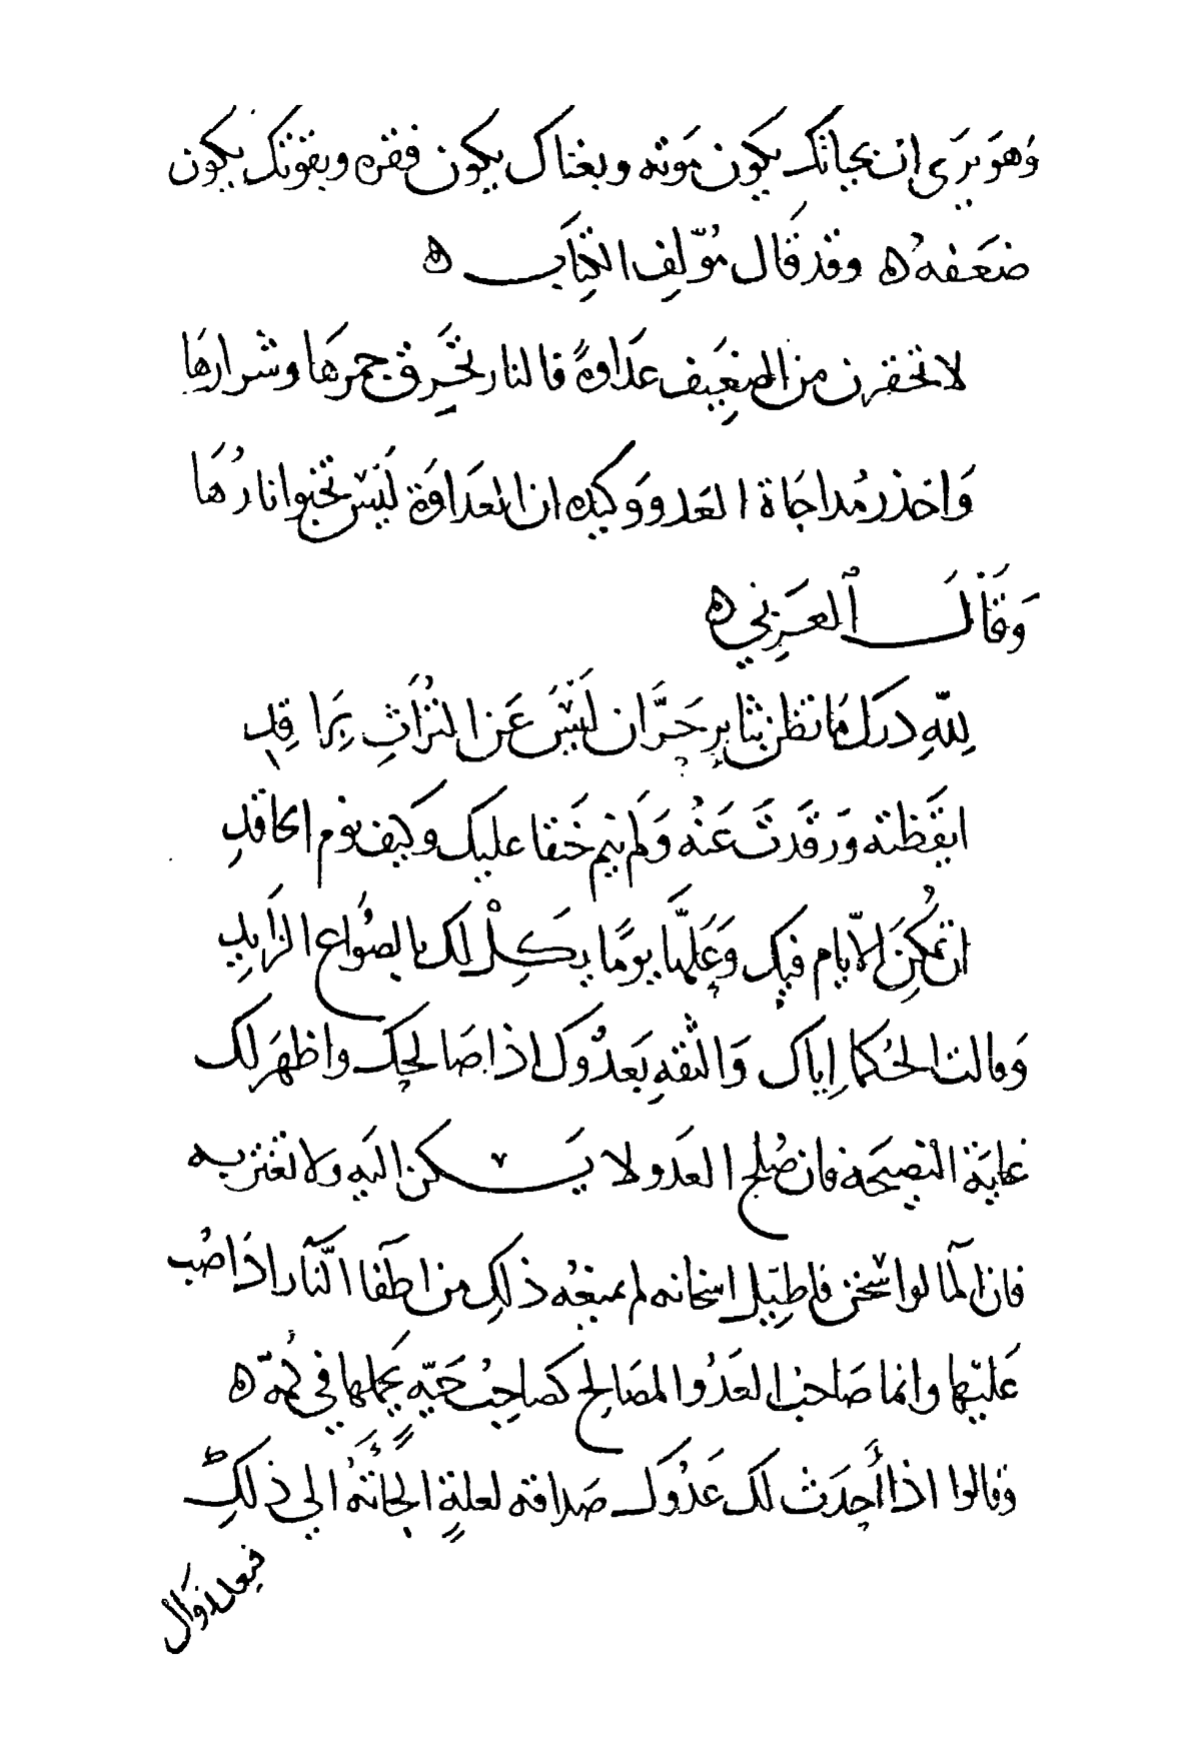 وَهوَ يرَى ان بحياتك يكون مَوته وبغناك يكون فقره وبقوتك يكون
ضعَفه ه وقد قَال مُوّلِف الكِتَاب ه
لا تحقرن من الضعِيف عدَاوةً فالنار تحَرِق جمرهَا وشرارهَا
وَاحذر مُداجَاة العَدو وَوكيده ان العدَاوَة ليَسَ تخبوا نارُهَا
وَقَالَ العَرَني ه
لِلّهِ دَرك مَا تظن بثايرٍ حَرَّان ليَسَ عَن التُرَاثِ برَاقِدِ
ايقَظته وَرقَدتَ عَنُه وَلم ينم حَنقا عليك وَكيف نوم الحاقدِ
ان تمُكِنَ الاّيام فيك وَعَلّها يومًا يكَِلْ لك بالصُوَاع الزَايدِ
وَقالت الحُكما اِياك وَالثقهِ بَعدُوَك اذا صَالحَك واظهَر لك
غايَة النصِيحَة فان صُلح العَدو لا يَسكن اليَه ولا تغتر به
فان المآ لوا سخن فاطِيل اسخانه لم يمنعُه ذلِك من اطَفا النَّآر اذَا صُب
عَليَها وانما صَاحب العَدُوا المصَالح كصَاحِبُ حَيّهٍ يحَملها في كُمهّ ه
وقالوا اذا أحِدَث لك عَدُوَك صَداقه لعلةٍ الجأَتهُ الي ذلكِ